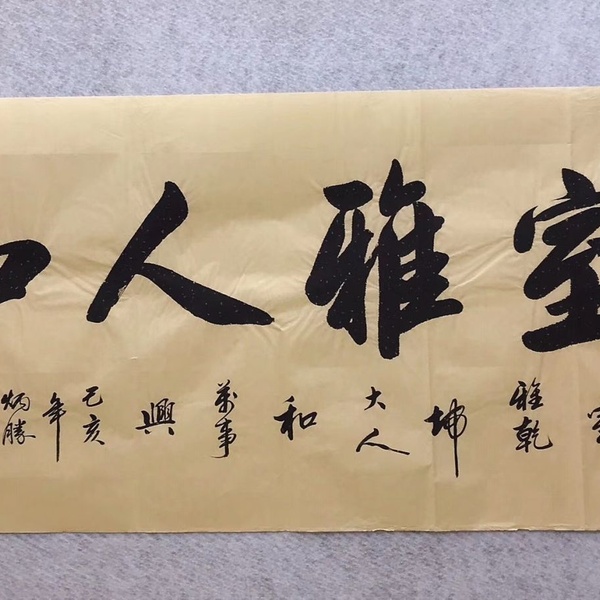 室雅人
雅乾坤大人和萬事興己亥年炳勝